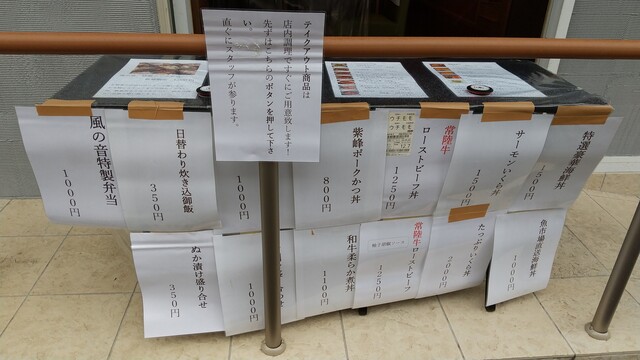 テイクアウト商品は
店内調理ですぐにご用意致します!
先ずはこちらのボタンを押して下さ
い。
直ぐにスタッフが参ります。
特選豪華海鮮丼
1500円
サーモンいくら丼
1500円
常陸牛
ローストビーフ丼
1250円
紫峰ポークかつ丼
800円
1000円
日替わり炊き込御飯
350円
風の音特製弁当
1000円
魚市場直送海鮮丼
1000円
たっぷりいくら丼
2000円
常陸牛ローストビーフ
1250円
和牛柔らか煮丼
1100円
1000円
ぬか漬け盛り合せ
350円